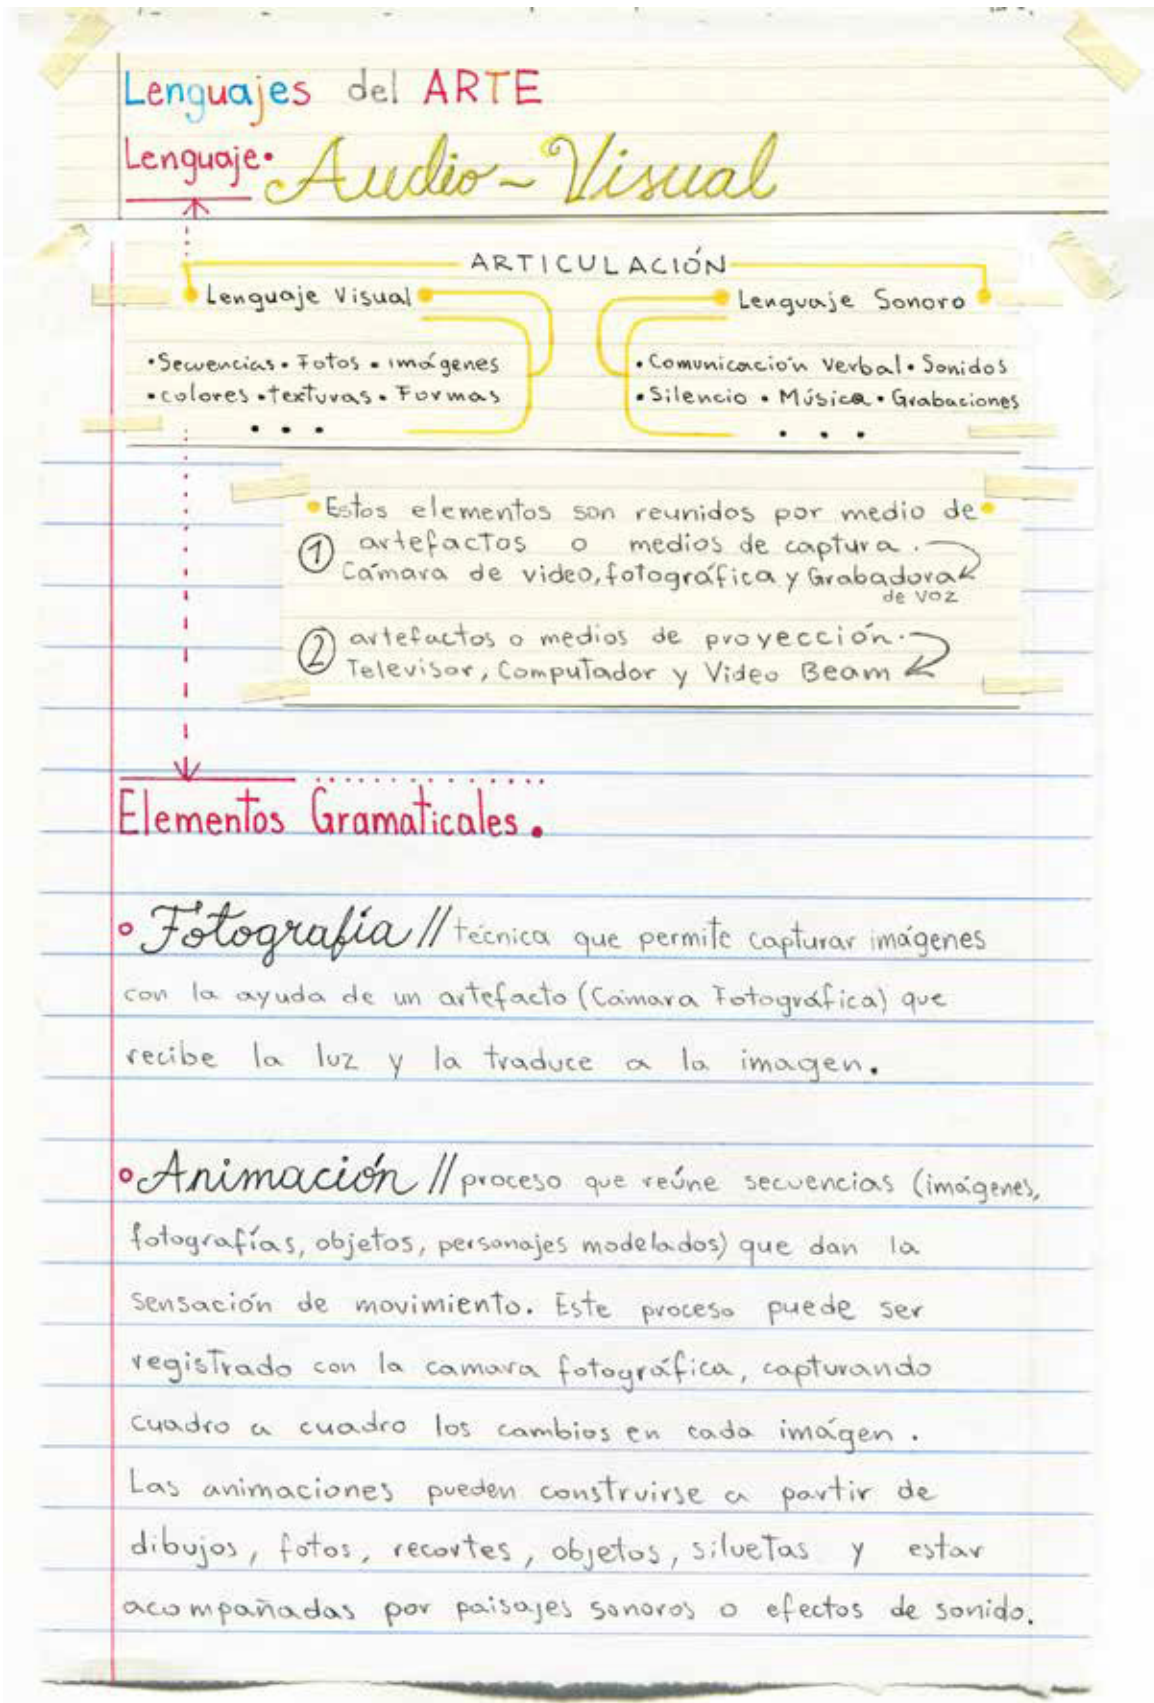 Lenguajes del ARTE
Lenguaje• Audio-Visual
ARTICULACIÓN
Lenguaje Visual
•Secuencias • Fotos • imágenes
•colores •texturas • Formas
• • •
Lenguaje Sonoro
•Comunicación Verbal • Sonidos
•Silencio • Música • Grabaciones
• • •
•Estos elementos son reunidos por medio de•
① artefactos o medios de captura.
Cámara de video, fotográfica y Grabadora
de voz
② artefactos o medios de proyección.
Televisor, Computador y Video Beam
Elementos Gramaticales.
• Fotografía // técnica que permite capturar imágenes
con la ayuda de un artefacto (Cámara Fotográfica) que
recibe la luz y la traduce a la imagen.
• Animación // proceso que reúne secuencias (imágenes,
fotografías, objetos, personajes modelados) que dan la
sensación de movimiento. Este proceso puede ser
registrado con la camara fotográfica, capturando
cuadro a cuadro los cambios en cada imágen.
Las animaciones pueden construirse a partir de
dibujos, fotos, recortes, objetos, siluetas y estar
acompañadas por paisajes sonoros o efectos de sonido.